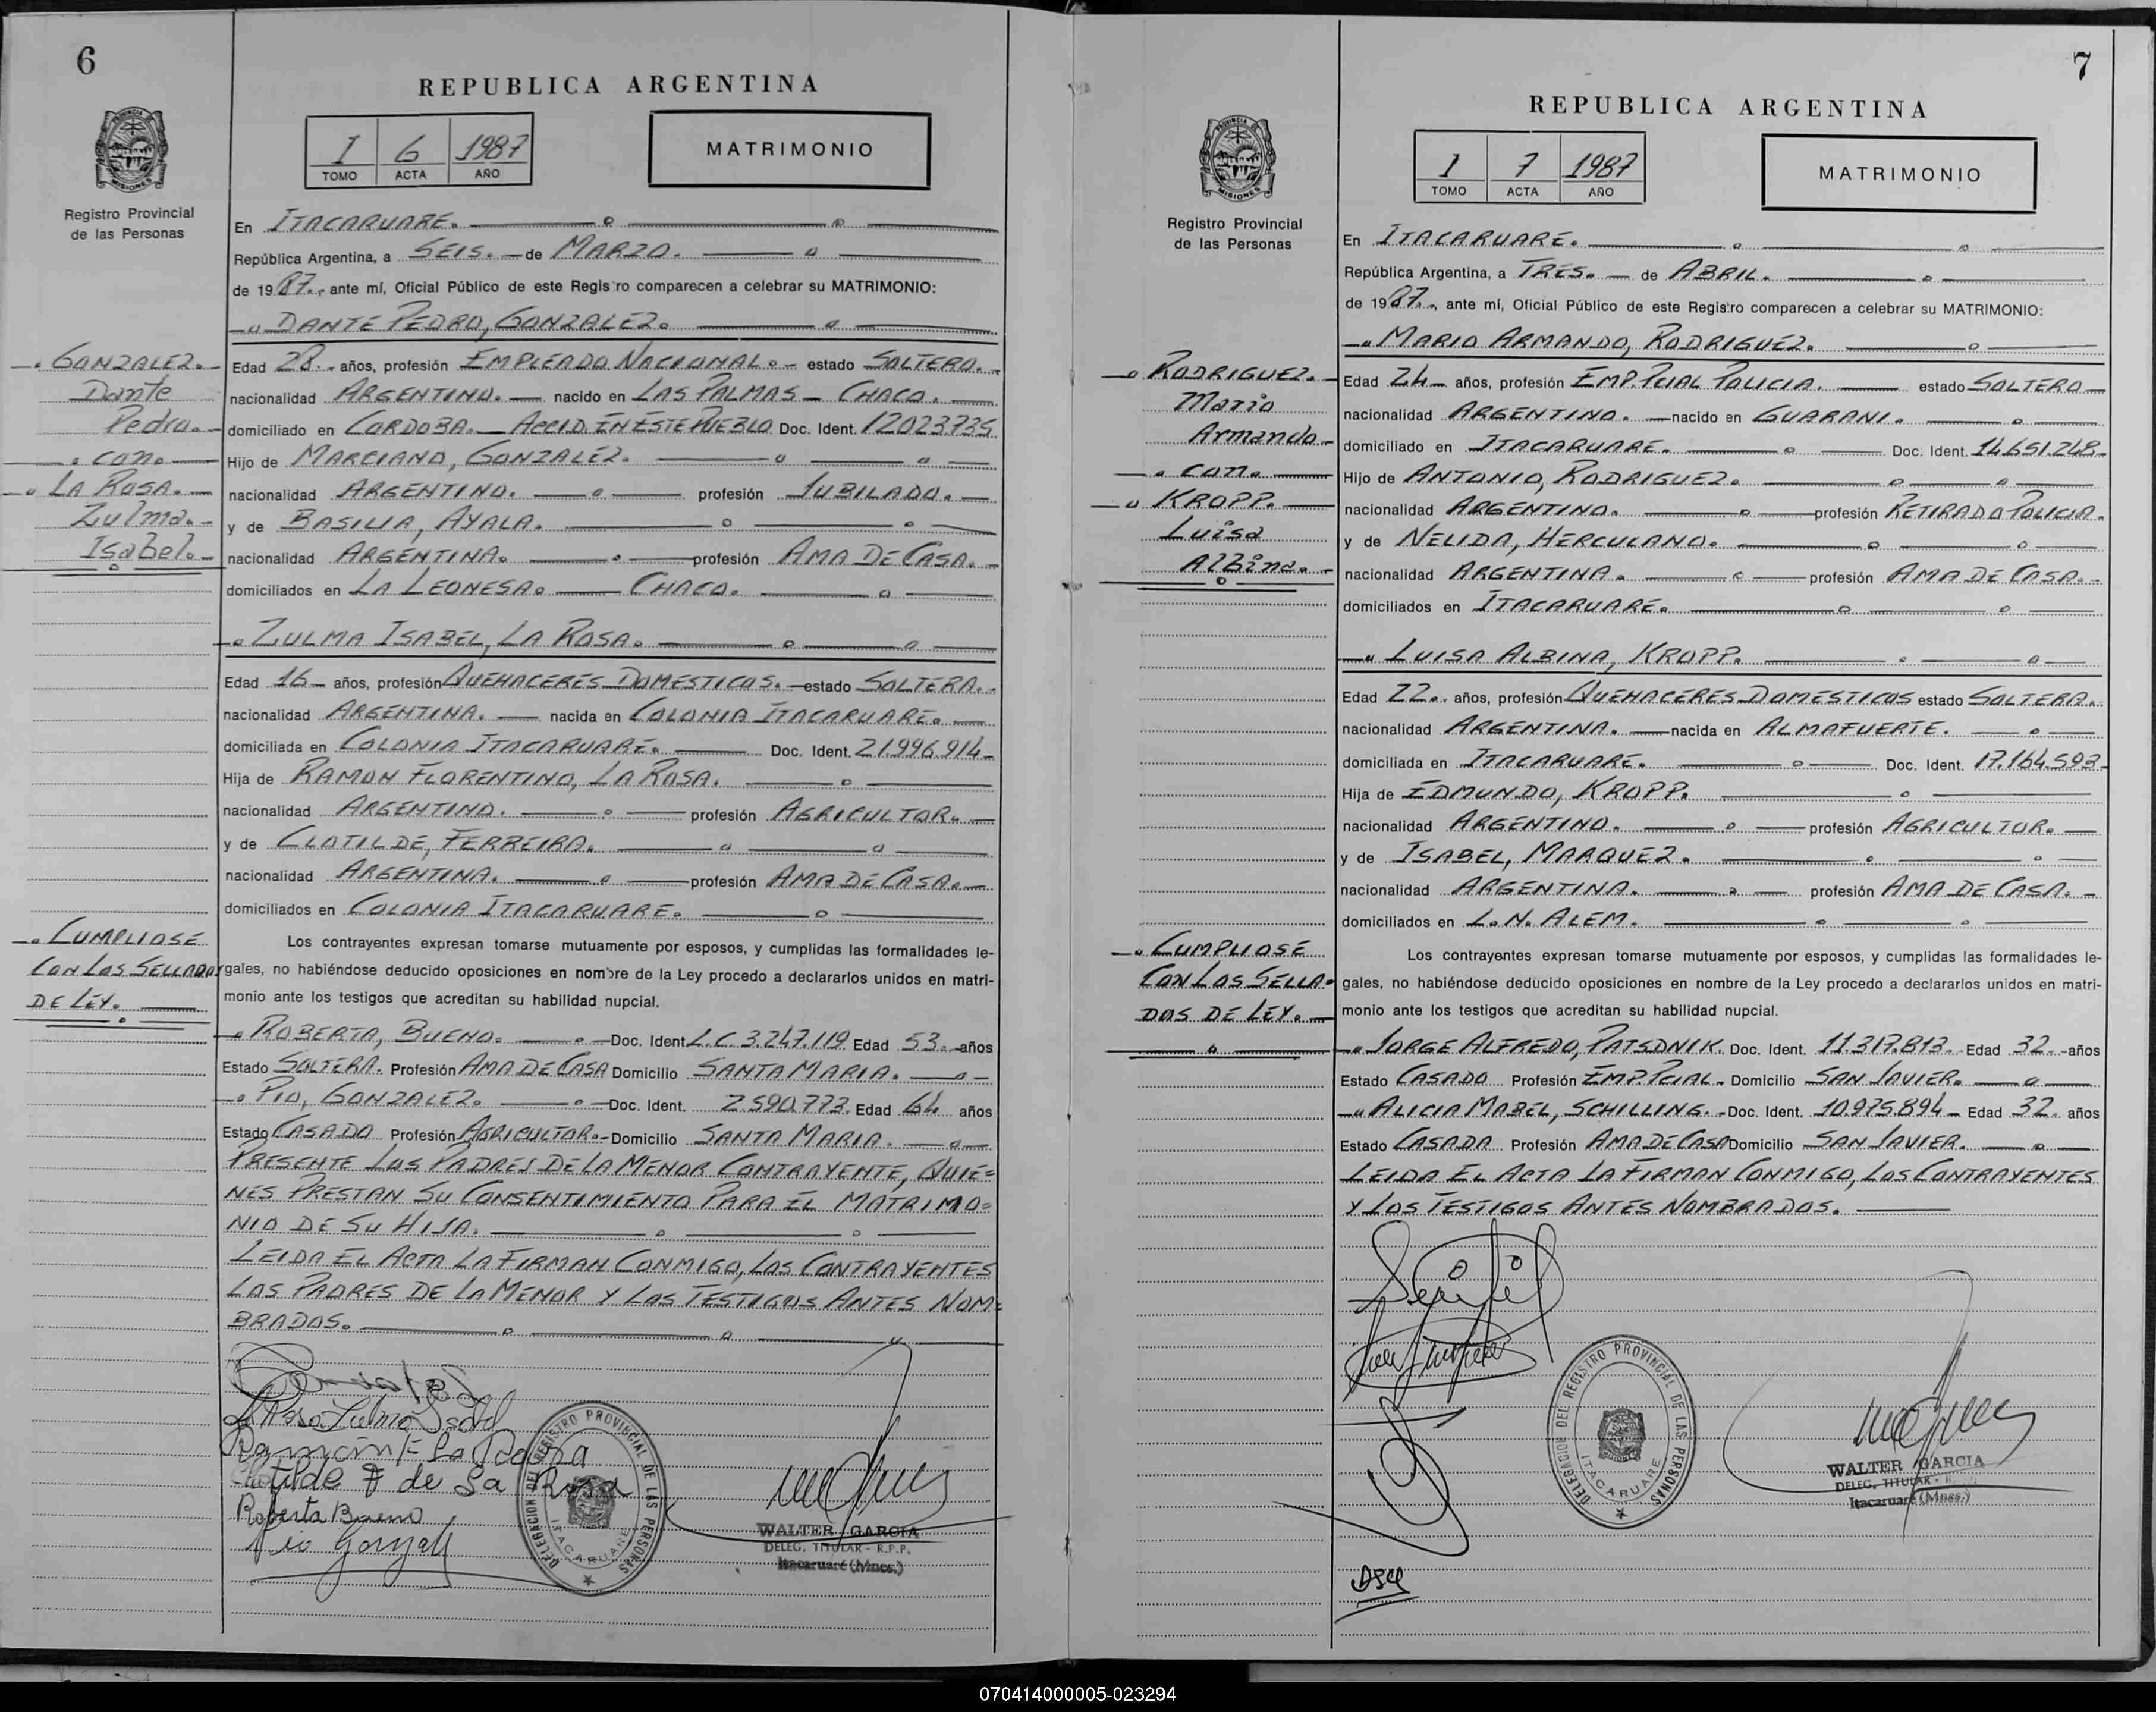 6
REPUBLICA ARGENTINA
PROVINCIA DE MISIONES
Registro Provincial
de las Personas
I 6 1987
TOMO ACTA AÑO
MATRIMONIO
En ITACARUARE.
República Argentina, a SEIS. de MARZO.
de 1987., ante mí, Oficial Público de este Registro comparecen a celebrar su MATRIMONIO:
DANTE PEDRO, GONZALEZ.
GONZALEZ.
Dante
Pedro.
con.
LA ROSA.
Zulma.
Isabel.
Edad 28. años, profesión EMPLEADO NACIONAL. estado SOLTERO.
nacionalidad ARGENTINO. nacido en LAS PALMAS - CHACO.
domiciliado en CORDOBA. ACCID. EN ESTE PUEBLO Doc. Ident. 12023735
Hijo de MARCIANO, GONZALEZ.
nacionalidad ARGENTINO. profesión JUBILADO.
y de BASILIA, AYALA.
nacionalidad ARGENTINA. profesión AMA DE CASA.
domiciliados en LA LEONESA. CHACO.
ZULMA ISABEL, LA ROSA.
Edad 16 años, profesión QUEHACERES DOMESTICOS. estado SOLTERA.
nacionalidad ARGENTINA. nacida en COLONIA ITACARUARE.
domiciliada en COLONIA ITACARUARE. Doc. Ident. 21.996.914
Hija de RAMON FLORENTINO, LA ROSA.
nacionalidad ARGENTINO. profesión AGRICULTOR.
y de CLOTILDE, FERREIRA.
nacionalidad ARGENTINA. profesión AMA DE CASA.
domiciliados en COLONIA ITACARUARE.
CUMPLIOSE
CON LOS SELLADOS
DE LEY.
Los contrayentes expresan tomarse mutuamente por esposos, y cumplidas las formalidades le-
gales, no habiéndose deducido oposiciones en nombre de la Ley procedo a declararlos unidos en matri-
monio ante los testigos que acreditan su habilidad nupcial.
ROBERTA, BUENO. Doc. Ident. L.C. 3.247.119 Edad 53. años
Estado SOLTERA. Profesión AMA DE CASA Domicilio SANTA MARIA.
PIO, GONZALEZ. Doc. Ident. 2.590.773. Edad 64 años
Estado CASADO Profesión AGRICULTOR. Domicilio SANTA MARIA.
PRESENTE LOS PADRES DE LA MENOR CONTRAYENTE, QUIE=
NES PRESTAN SU CONSENTIMIENTO PARA EL MATRIMO=
NIO DE SU HIJA.
LEIDA EL ACTA LA FIRMAN CONMIGO, LOS CONTRAYENTES
LOS PADRES DE LA MENOR Y LOS TESTIGOS ANTES NOM=
BRADOS.
La Rosa Zulma Isabel
Ramón F La Rosa
Clotilde F de La Rosa
Roberta Bueno
Pio Gonzalz
DELEGACION DEL REGISTRO PROVINCIAL DE LAS PERSONAS
ITACARUARE
WALTER GARCIA
DELEG. TITULAR - R.P.P.
Itacaruaré (Mnes.)
7
REPUBLICA ARGENTINA
PROVINCIA DE MISIONES
Registro Provincial
de las Personas
I 7 1987
TOMO ACTA AÑO
MATRIMONIO
En ITACARUARE.
República Argentina, a TRES. de ABRIL.
de 1987., ante mí, Oficial Público de este Registro comparecen a celebrar su MATRIMONIO:
MARIO ARMANDO, RODRIGUEZ.
RODRIGUEZ.
Mario
Armando
con.
KROPP.
Luisa
Albina.
Edad 24 años, profesión EMP. PCIAL POLICIA. estado SOLTERO
nacionalidad ARGENTINO. nacido en GUARANI.
domiciliado en ITACARUARE. Doc. Ident. 14.651.248
Hijo de ANTONIO, RODRIGUEZ.
nacionalidad ARGENTINO. profesión RETIRADO POLICIA.
y de NELIDA, HERCULANO.
nacionalidad ARGENTINA. profesión AMA DE CASA.
domiciliados en ITACARUARE.
LUISA ALBINA, KROPP.
Edad 22. años, profesión QUEHACERES DOMESTICOS estado SOLTERA.
nacionalidad ARGENTINA. nacida en ALMAFUERTE.
domiciliada en ITACARUARE. Doc. Ident. 17.164.593
Hija de EDMUNDO, KROPP.
nacionalidad ARGENTINO. profesión AGRICULTOR.
y de ISABEL, MARQUEZ.
nacionalidad ARGENTINA. profesión AMA DE CASA.
domiciliados en L.N. ALEM.
CUMPLIOSE
CON LOS SELLA=
DOS DE LEY.
Los contrayentes expresan tomarse mutuamente por esposos, y cumplidas las formalidades le-
gales, no habiéndose deducido oposiciones en nombre de la Ley procedo a declararlos unidos en matri-
monio ante los testigos que acreditan su habilidad nupcial.
JORGE ALFREDO, PATSDNIK. Doc. Ident. 11.317.813. Edad 32. años
Estado CASADO Profesión EMP. PCIAL. Domicilio SAN JAVIER.
ALICIA MABEL, SCHILLING. Doc. Ident. 10.975.894 Edad 32. años
Estado CASADA Profesión AMA DE CASA Domicilio SAN JAVIER.
LEIDA EL ACTA LA FIRMAN CONMIGO, LOS CONTRAYENTES
Y LOS TESTIGOS ANTES NOMBRADOS.
DELEGACION DEL REGISTRO PROVINCIAL DE LAS PERSONAS
ITACARUARE
WALTER GARCIA
DELEG. TITULAR
Itacaruaré (Mnes.)
070414000005-023294